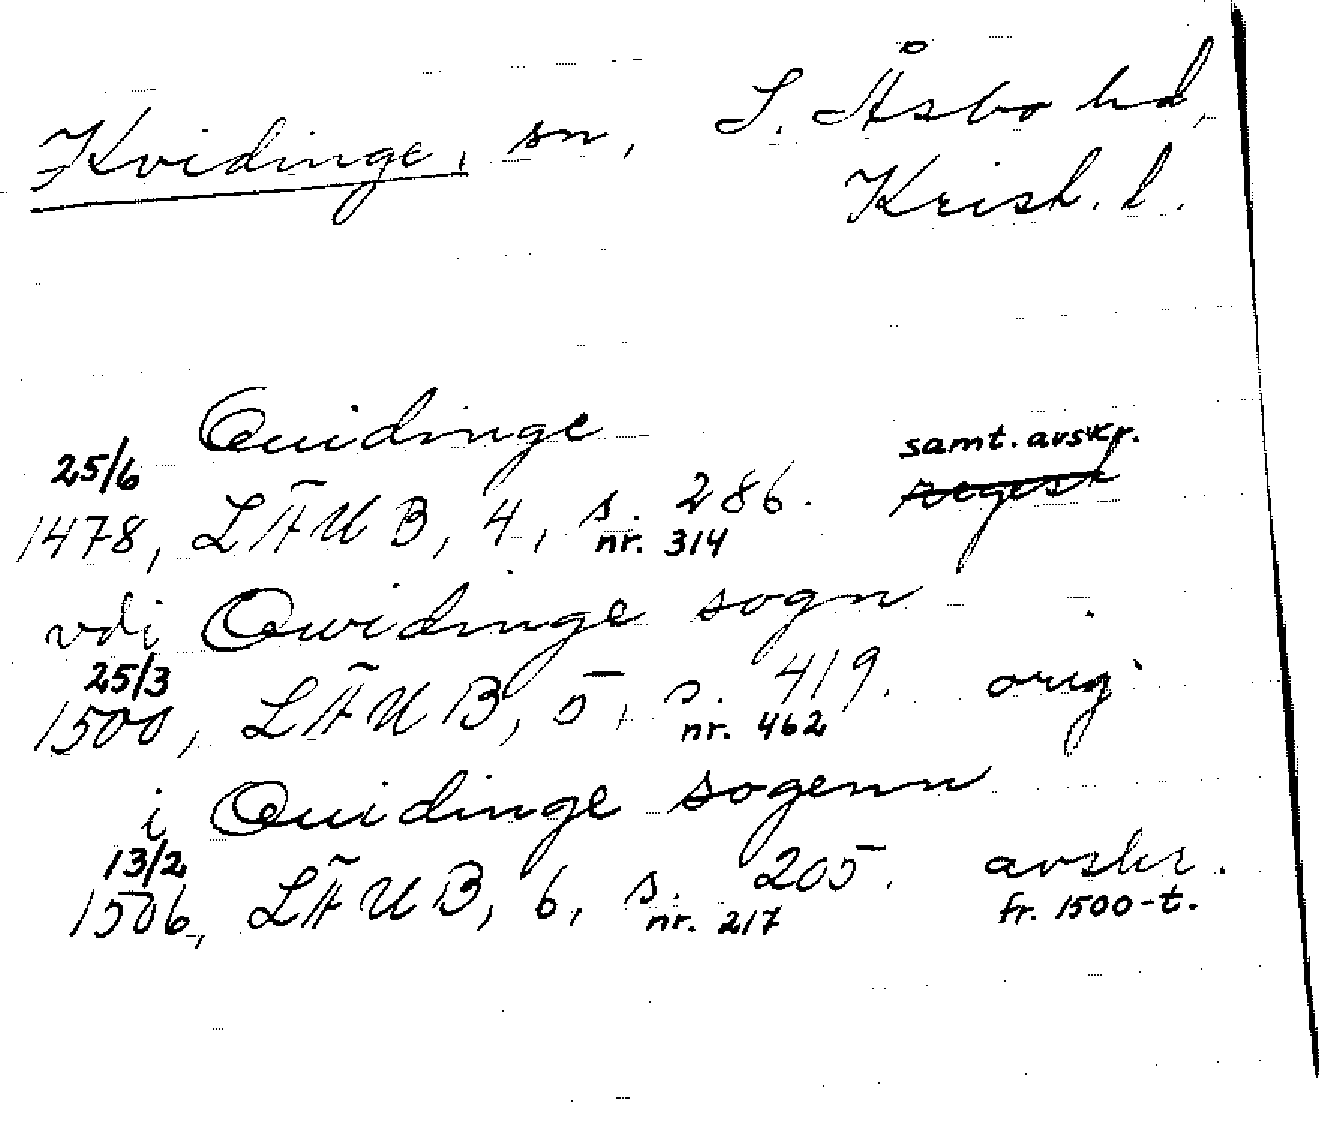 Kvidinge, sn, S. Åsbo hd,
Krist. l.
Quidinge
25/6 samt. avskr.
1478, LÄUB, 4, s. 286. regest
nr. 314
vdi Qwidinge sogn
25/3
1500, LÄUB, 5, s. 419. orig.
nr. 462
i Quidinge sogenn
13/2
1506, LÄUB, 6, s. 205. avskr.
nr. 217 fr. 1500-t.